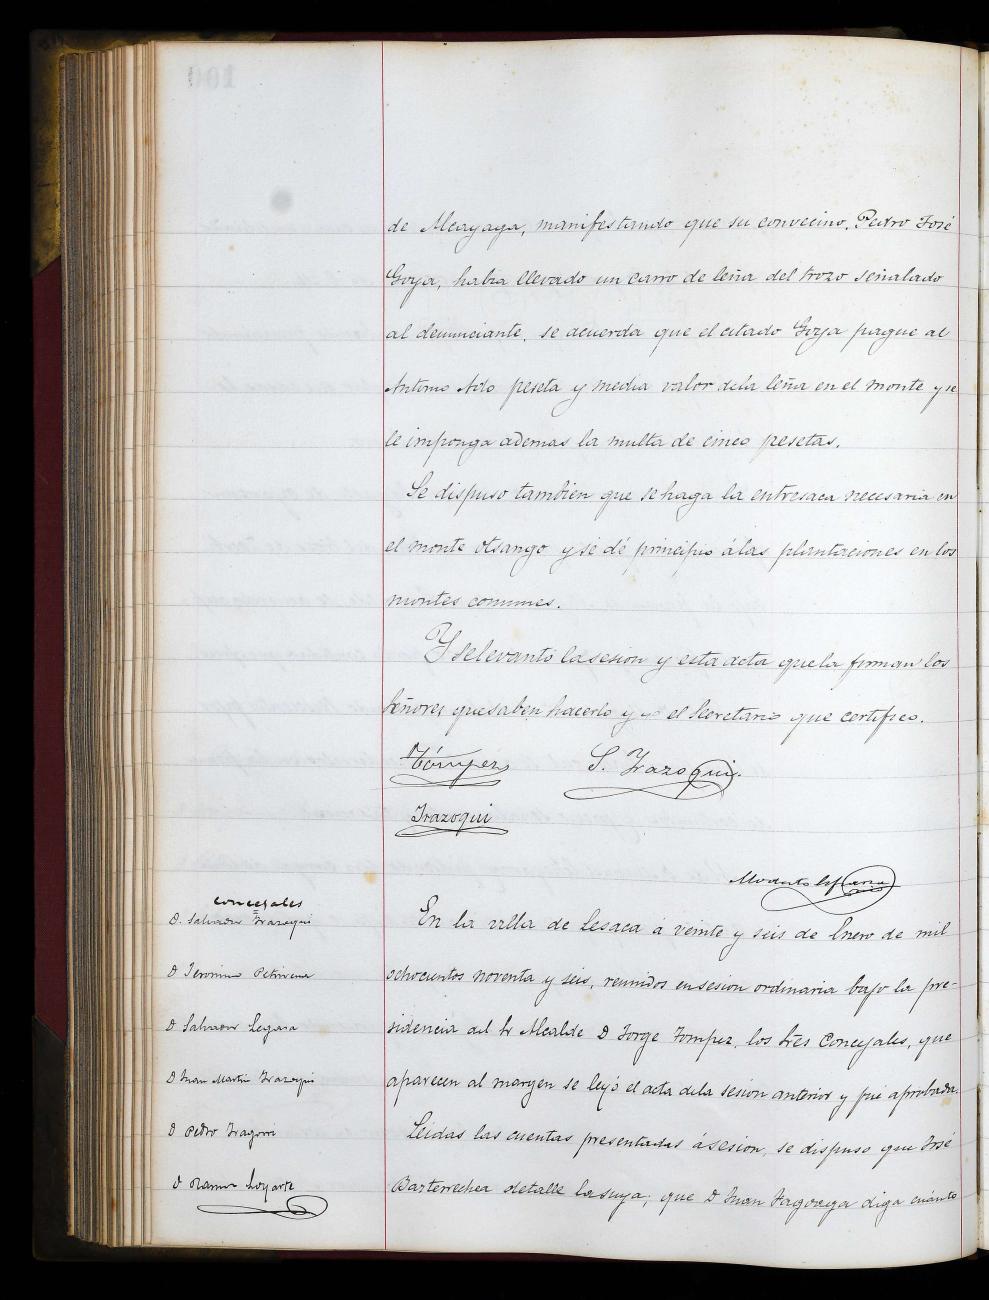 de Alcayaga, manifestando que su convecino, Pedro José
Goya, habia llevado un carro de leña del trozo señalado
al denunciante, se acuerda que el citado Goya pague al
Antonio peseta y media valor dela leña en el monte y se
le imponga ademas la multa de cinco pesetas.
Se dispuso tambien que se haga la entresaca necesaria en
el monte Otsango y se dé principio á las plantaciones en los
montes comunes.
Y se levantó la sesion y esta acta que la firman los
señores que saben hacerlo y yo el Secretario que certifico.
Tómpez S. Irazoqui.
Irazoqui
Modesto
concejales
D. Salvador Irazoqui
D Jeronimo Petrirena
D Salvador Legasa
D Juan Martin Irazoqui
D Pedro Iragorri
D Ramon Loyarte
En la villa de Lesaca á veinte y seis de Enero de mil
ochocientos noventa y seis, reunidos en sesion ordinaria bajo la pre-
sidencia del Sr Alcalde D Jorge Tompez, los Sres Concejales, que
aparecen al margen se leyó el acta dela sesion anterior y fué aprobada.
Leidas las cuentas presentadas á sesion, se dispuso que José
Bazterrechea detalle la suya, que D Juan diga cuánto